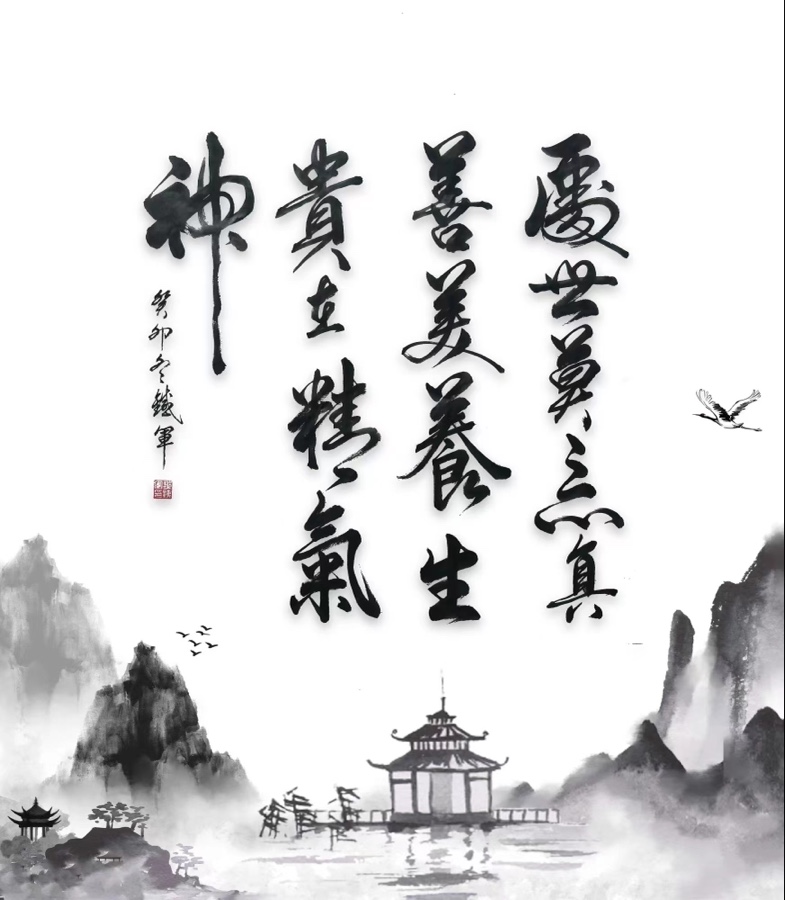 處世莫忘真
善美養生
貴在精氣
神
癸卯冬鐵軍